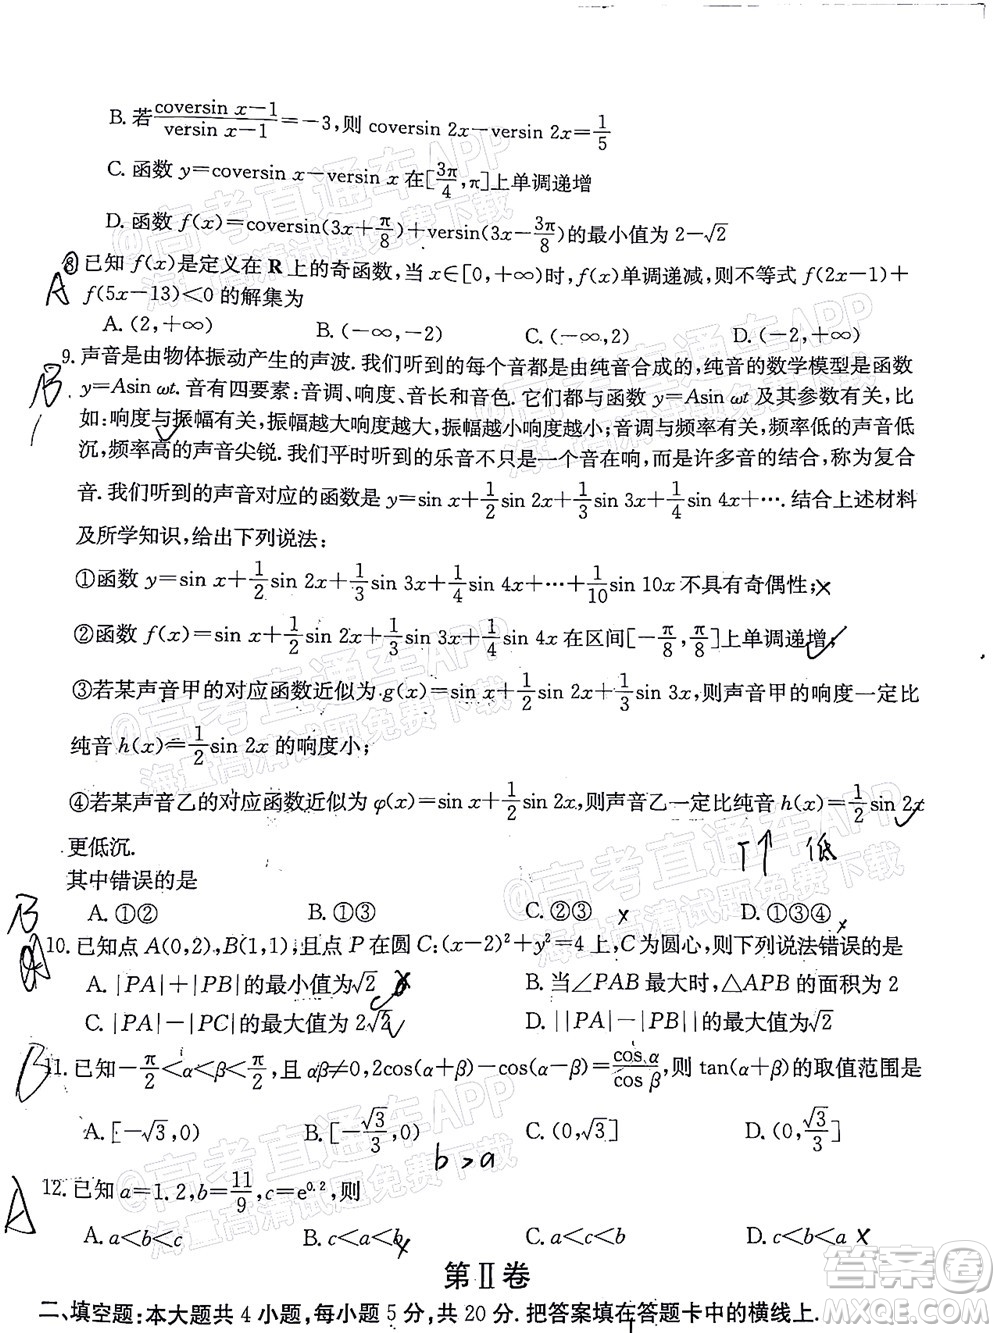 B. 若(coversin x−1)/(versin x−1)=−3,则 coversin 2x−versin 2x=1/5
C. 函数 y=coversin x−versin x 在[3π/4,π]上单调递增
D. 函数 f(x)=coversin(3x+π/8)+versin(3x−3π/8)的最小值为 2−√2
A
8 已知 f(x)是定义在 R 上的奇函数,当 x∈[0,+∞)时,f(x)单调递减,则不等式 f(2x−1)+
f(5x−13)<0 的解集为
A. (2,+∞) B. (−∞,−2) C. (−∞,2) D. (−2,+∞)
B
9. 声音是由物体振动产生的声波. 我们听到的每个音都是由纯音合成的,纯音的数学模型是函数
y=Asin ωt. 音有四要素:音调、响度、音长和音色. 它们都与函数 y=Asin ωt 及其参数有关,比
如:响度与振幅有关,振幅越大响度越大,振幅越小响度越小;音调与频率有关,频率低的声音低
沉,频率高的声音尖锐. 我们平时听到的乐音不只是一个音在响,而是许多音的结合,称为复合
音. 我们听到的声音对应的函数是 y=sin x+1/2sin 2x+1/3sin 3x+1/4sin 4x+⋯. 结合上述材料
及所学知识,给出下列说法:
①函数 y=sin x+1/2sin 2x+1/3sin 3x+1/4sin 4x+⋯+1/10sin 10x 不具有奇偶性; ×
②函数 f(x)=sin x+1/2sin 2x+1/3sin 3x+1/4sin 4x 在区间[−π/8,π/8]上单调递增; ✓
③若某声音甲的对应函数近似为 g(x)=sin x+1/2sin 2x+1/3sin 3x,则声音甲的响度一定比
纯音 h(x)=1/2sin 2x 的响度小;
④若某声音乙的对应函数近似为 φ(x)=sin x+1/2sin 2x,则声音乙一定比纯音 h(x)=1/2sin 2x
更低沉.
T↑ 低
其中错误的是
A. ①② B. ①③ C. ②③ × D. ①③④ ×
B
A
10. 已知点 A(0,2),B(1,1),且点 P 在圆 C:(x−2)²+y²=4 上,C 为圆心,则下列说法错误的是
A. |PA|+|PB|的最小值为√2 B. 当∠PAB 最大时,△APB 的面积为 2
C. |PA|−|PC|的最大值为 2√2 D. ||PA|−|PB||的最大值为√2
B
11. 已知−π/2<α<β<π/2,且 αβ≠0,2cos(α+β)−cos(α−β)=cos α/cos β,则 tan(α+β)的取值范围是
A. [−√3,0) B. [−√3/3,0) C. (0,√3] D. (0,√3/3]
b>a
A
12. 已知 a=1.2,b=11/9,c=e^0.2,则
A. a<b<c B. c<a<b × C. a<c<b D. c<b<a ×
第Ⅱ卷
二、填空题:本大题共 4 小题,每小题 5 分,共 20 分. 把答案填在答题卡中的横线上.
@高考直通车APP
海量高清试题免费下载
@高考直通车APP
海量高清试题免费下载
@高考直通车APP
海量高清试题免费下载
@高考直通车APP
海量高清试题免费下载
@高考直通车APP
海量高清试题免费下载
答案圈
MXQE.COM